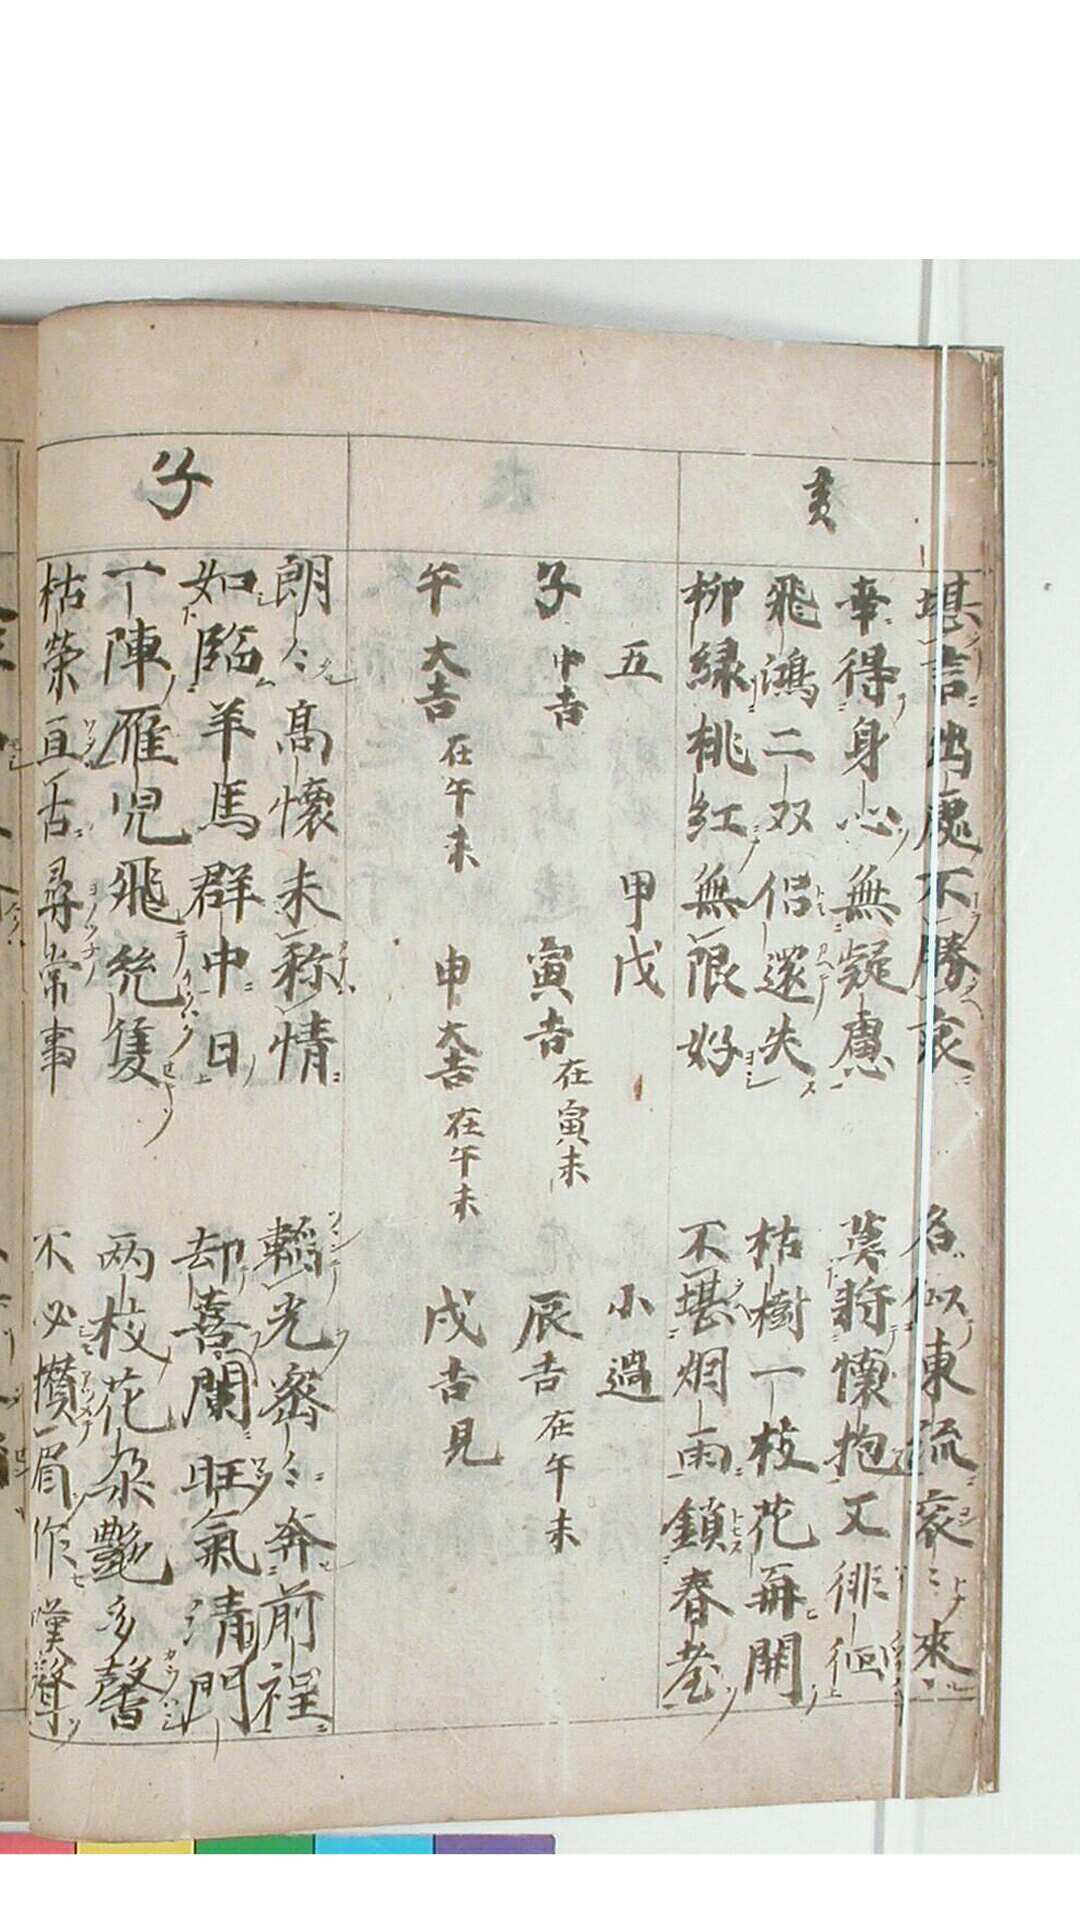 亥
堪言 處不勝哀 名似東流衮〻來
幸得身心無疑慮 莫將懷抱又徘徊
飛鴻二双侶還失 枯樹一枝花再開
柳緑桃紅無限好 不堪烟雨鎖春臺
五 甲戊 小過
子 中吉 寅吉 在寅未 辰吉 在午未
午 大吉 在午未 申大吉 在午未 戌吉見
子
朗〻高懷未称情 韜光密〻奔前程
如臨羊馬群中日 却喜闌旺氣清門
一陣雁児飛 隻 两枝花朶艷多馨
枯榮亘古尋常事 不必攅眉作嘆聲